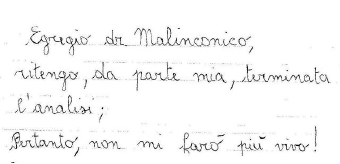 Egregio dr Malinconico,
ritengo, da parte mia, terminata
l'analisi;
Pertanto, non mi farò più vivo!